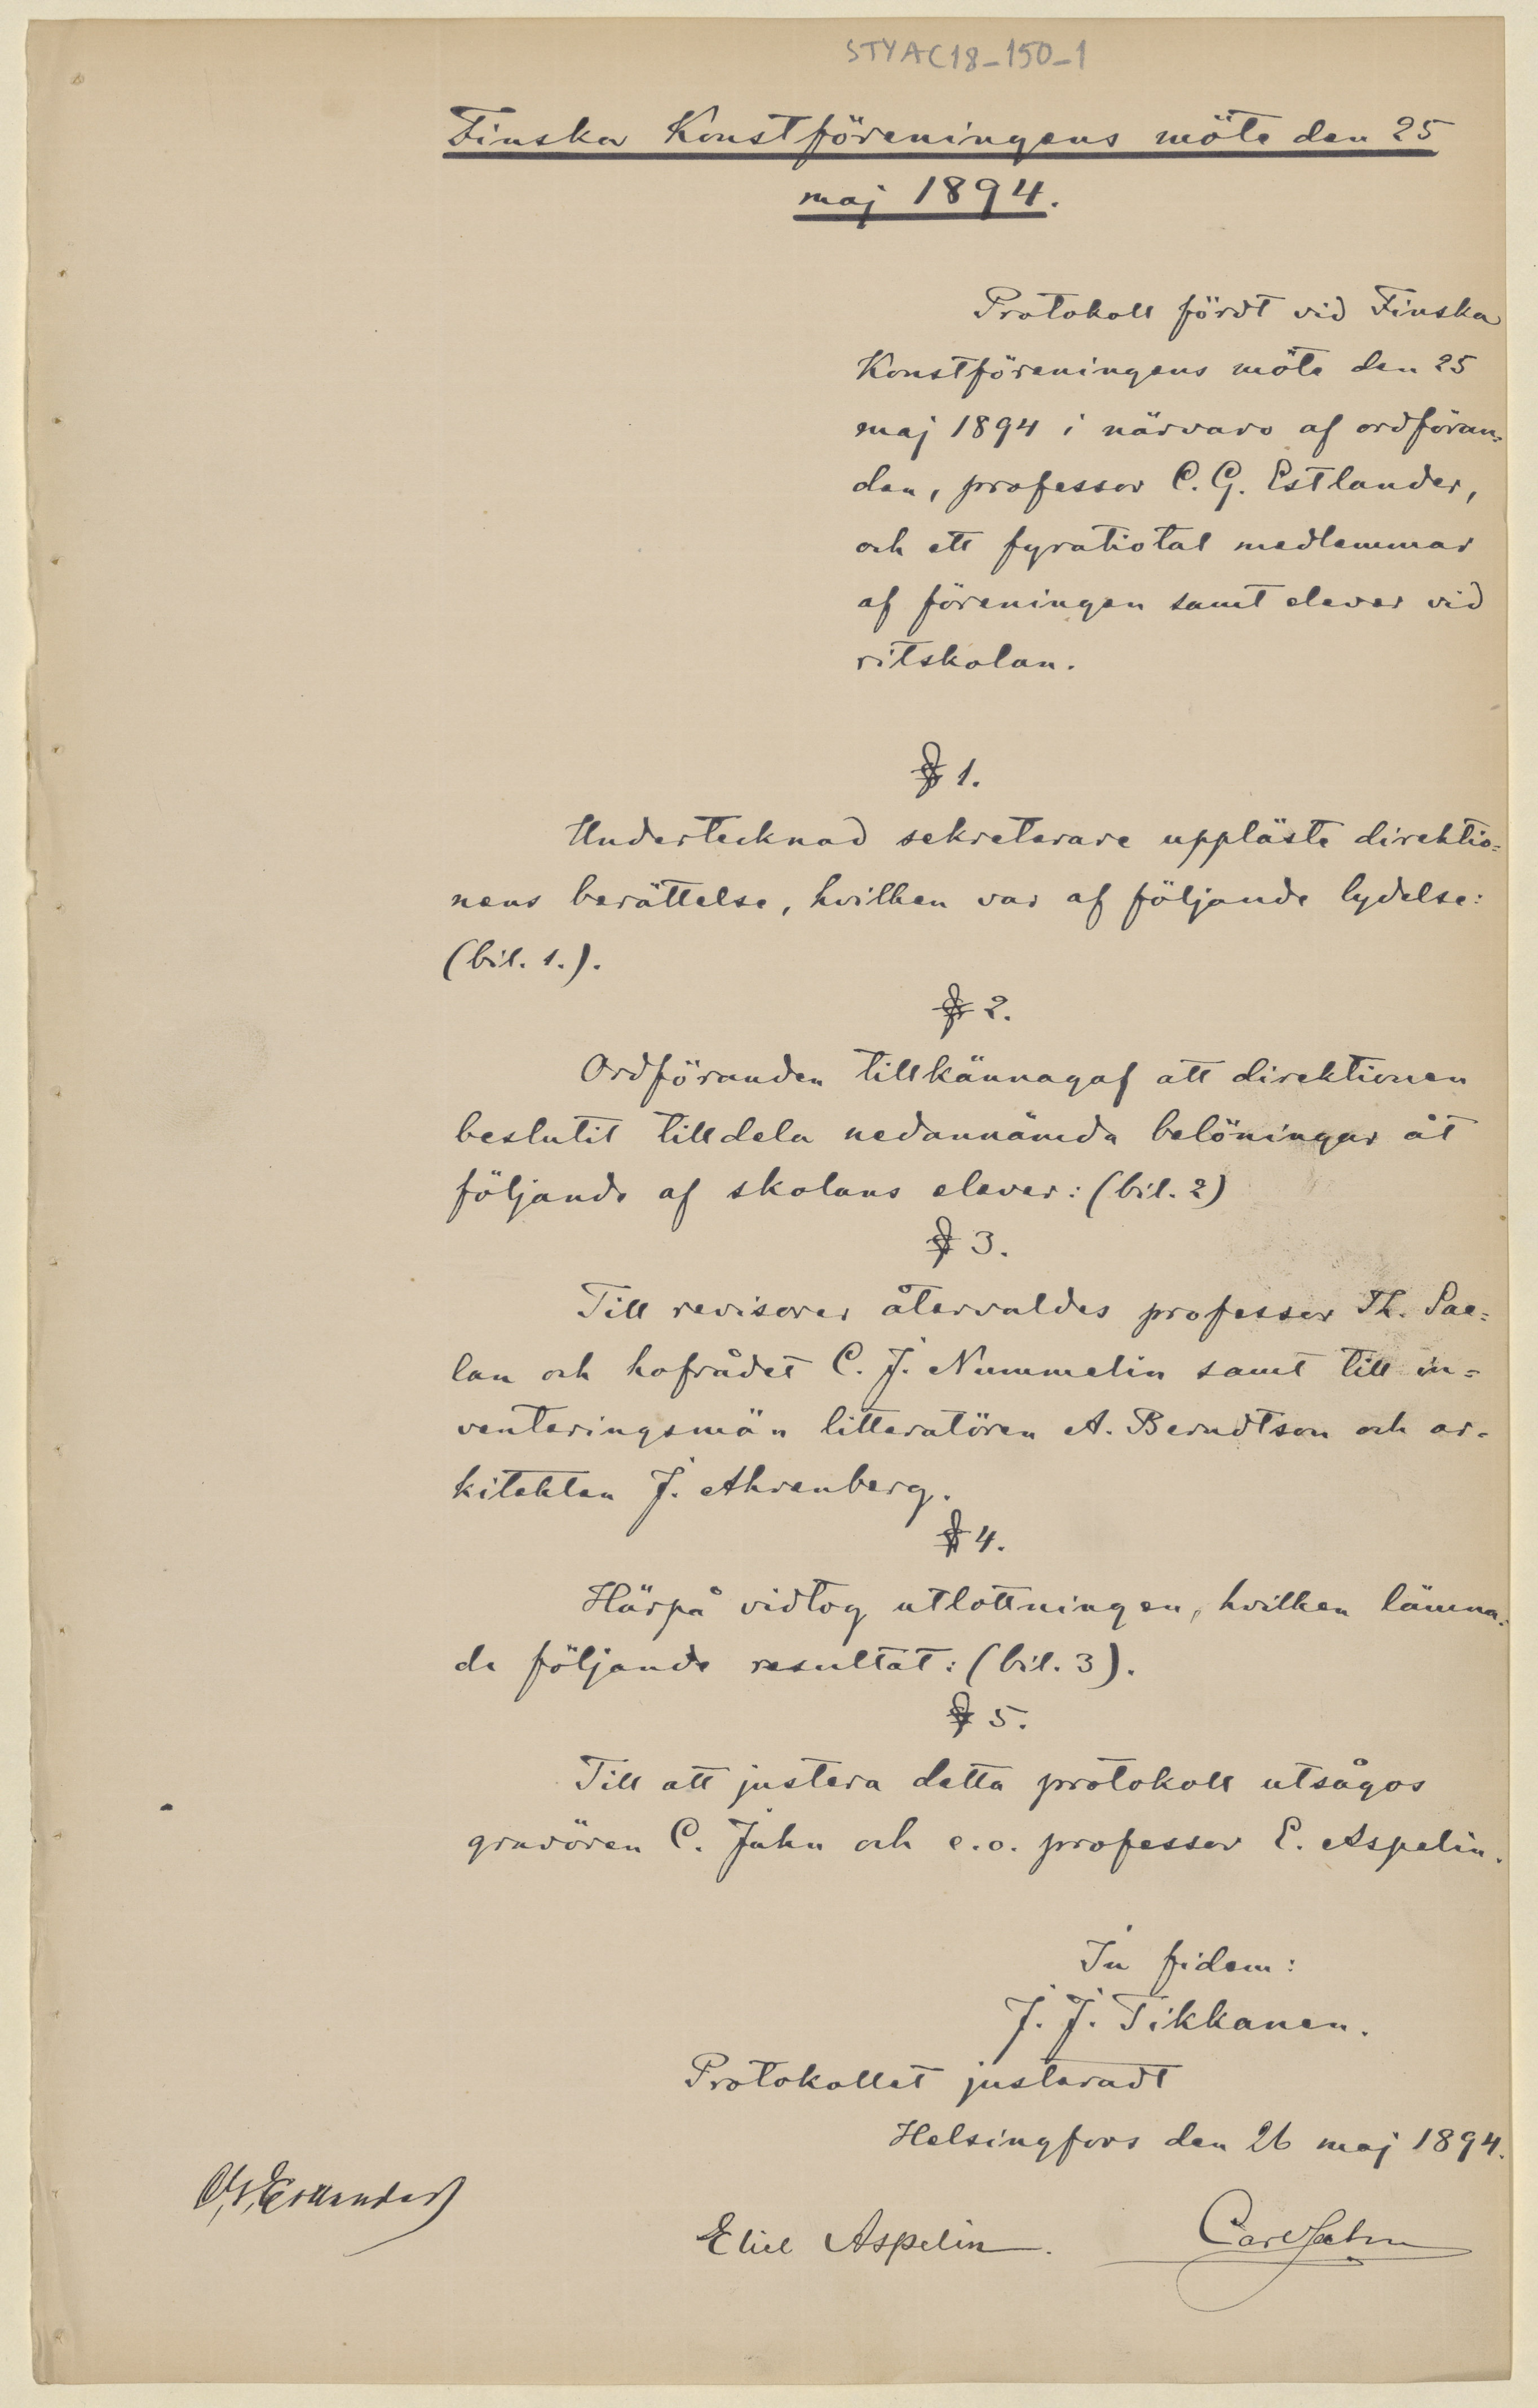 STYAC18_150_1
Finska Konstföreningens möte den 25
maj 1894.
Protokoll fördt vid Finska
Konstföreningens möte den 25
maj 1894 i närvaro af ordföran=
den, professor C. G. Estlander,
och ett fyratiotal medlemmar
af föreningen samt elever vid
ritskolan.
§ 1.
Undertecknad sekreterare uppläste direktio=
nens berättelse, hvilken var af följande lydelse:
(bil. 1.).
§ 2.
Ordföranden tillkännagaf att direktionen
beslutit tilldela nedannämda belöningar åt
följande af skolans elever: (bil. 2)
§ 3.
Till revisorer återvaldes professor Th. Sae=
lan och hofrådet C. J. Nummelin samt till in=
venteringsmän litteratören A. Berndtson och ar=
kitekten J. Ahrenberg.
§ 4.
Härpå vidtog utlottningen, hvilken lämna=
de följande resultat: (bil. 3).
§ 5.
Till att justera detta protokoll utsågos
gravören C. Jahn och e.o. professor E. Aspelin.
In fidem:
J. J. Tikkanen.
Protokollet justeradt
Helsingfors den 26 maj 1894.
C. G. Estlander
Eliel Aspelin.
Carl Jahn